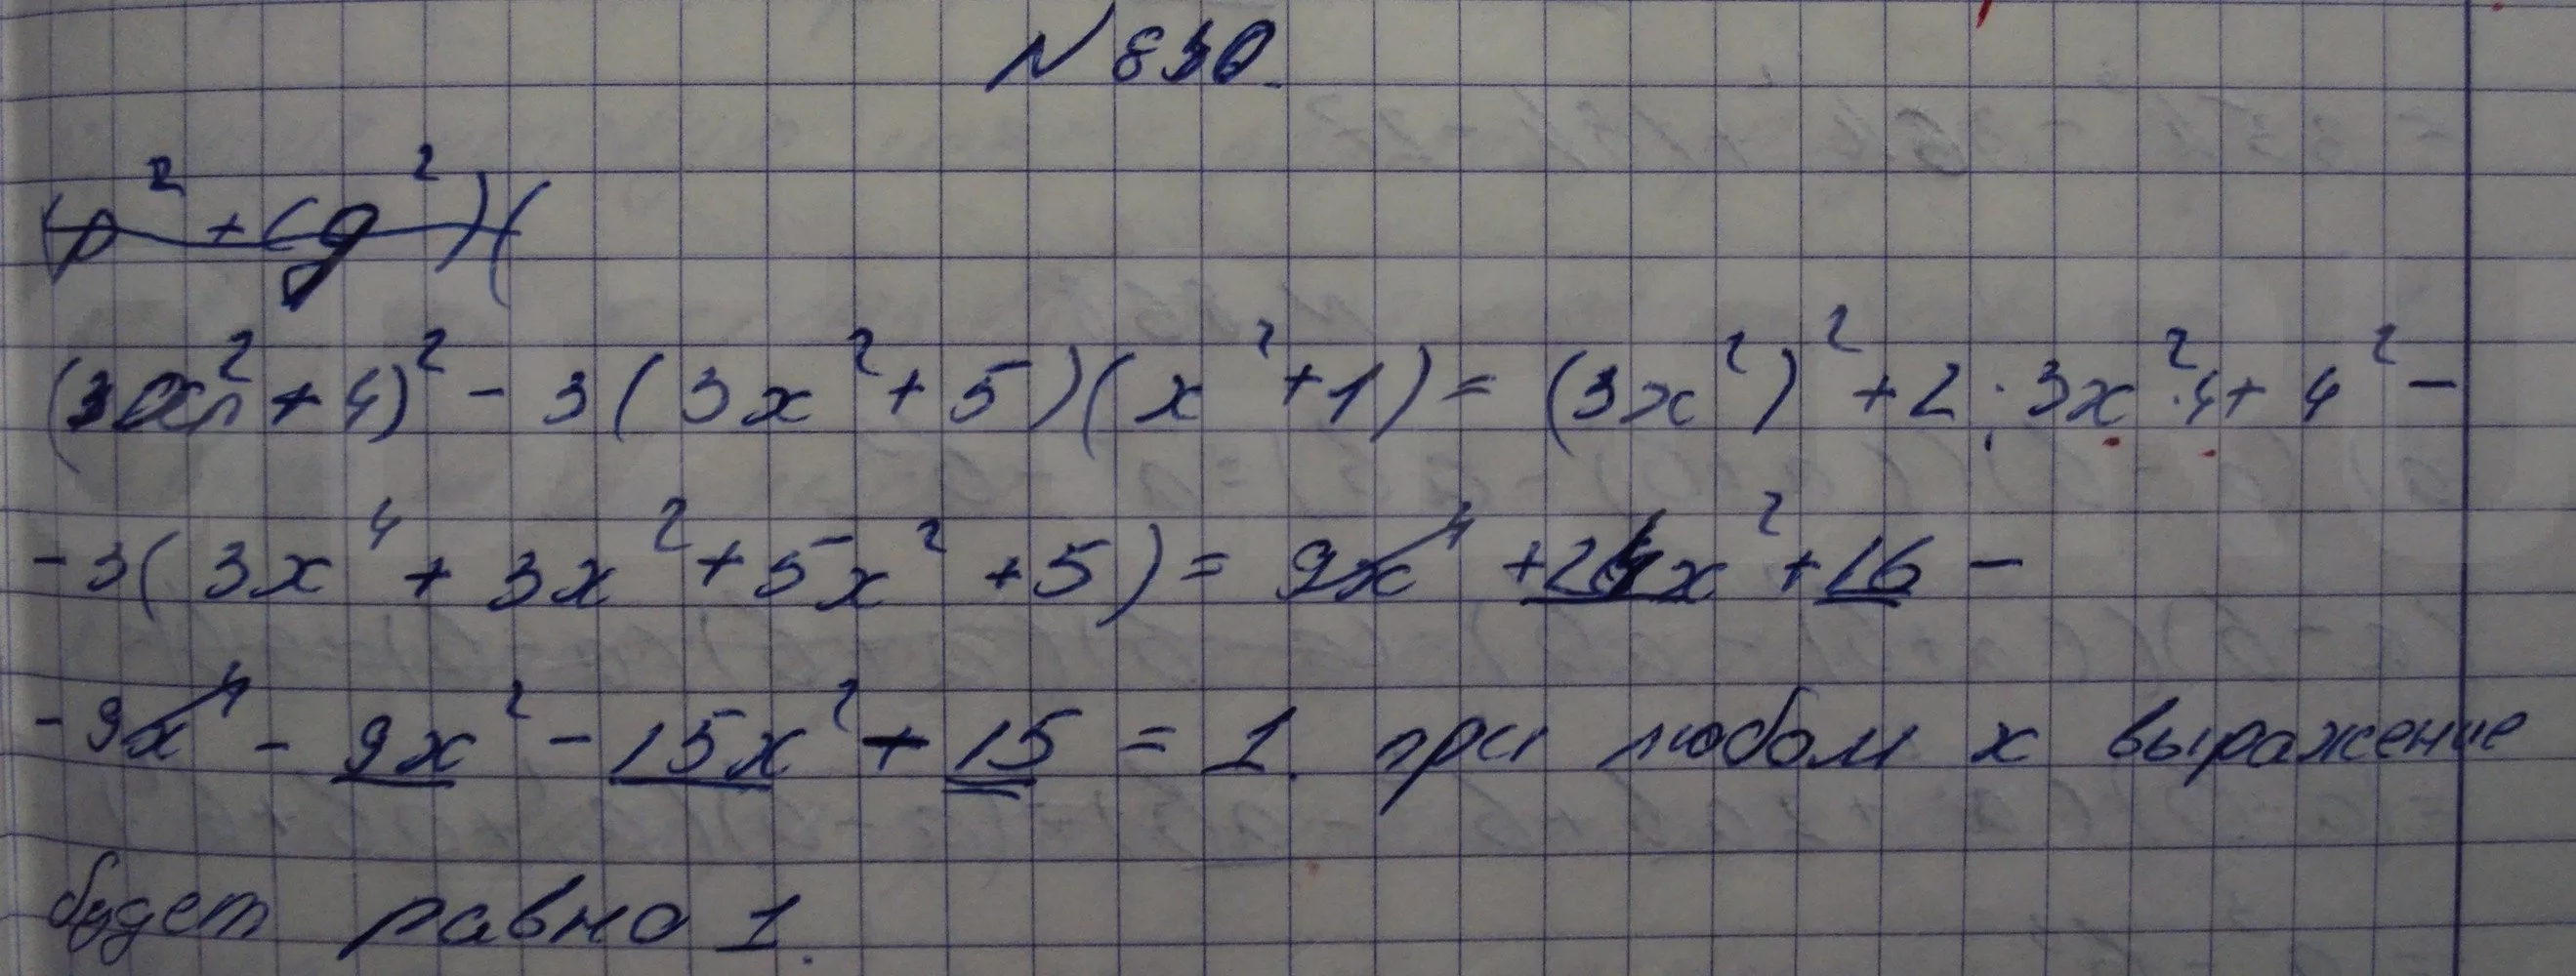 № 830.
(p² + (q²)(
(3x² + 4)² - 3(3x² + 5)(x² + 1) = (3x²)² + 2 · 3x² · 4 + 4² -
- 3(3x⁴ + 3x² + 5x² + 5) = 9x⁴ + 24x² + 16 -
- 9x⁴ - 9x² - 15x² - 15 = 1. при любом x выражение
будет равно 1.